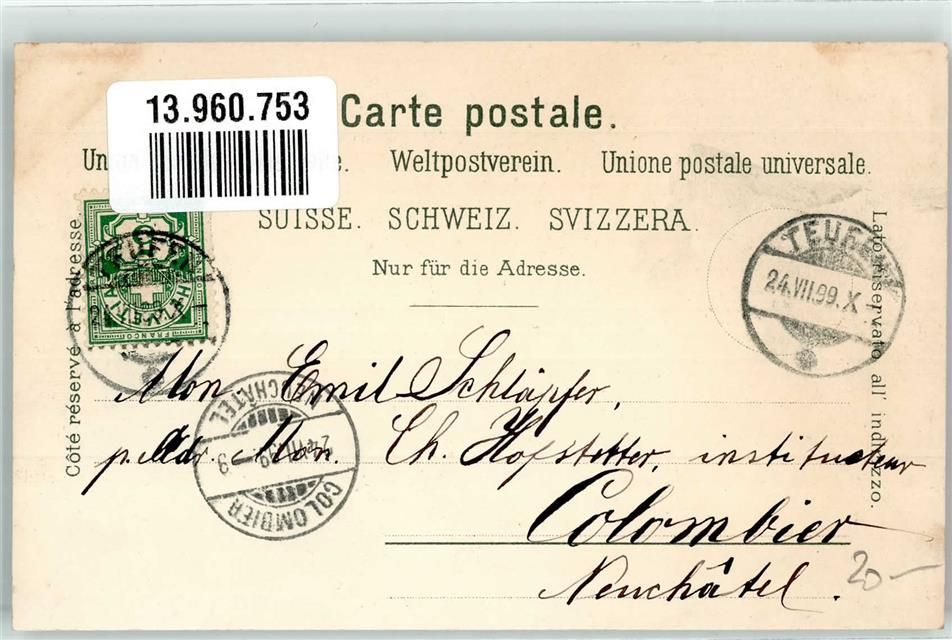 13.960.753
Carte postale.
Weltpostverein. Unione postale universale.
SUISSE. SCHWEIZ. SVIZZERA.
Nur für die Adresse.
Côté réservé à l'adresse.
Lato riservato all' indirizzo.
FRANCO
TEUFEN
24.VII.99.X
Mon. Emil Schläpfer,
p. Adr. Mon. Ch. Hofstetter, instituteur
Colombier
Neuchâtel.
COLOMBIER
20-